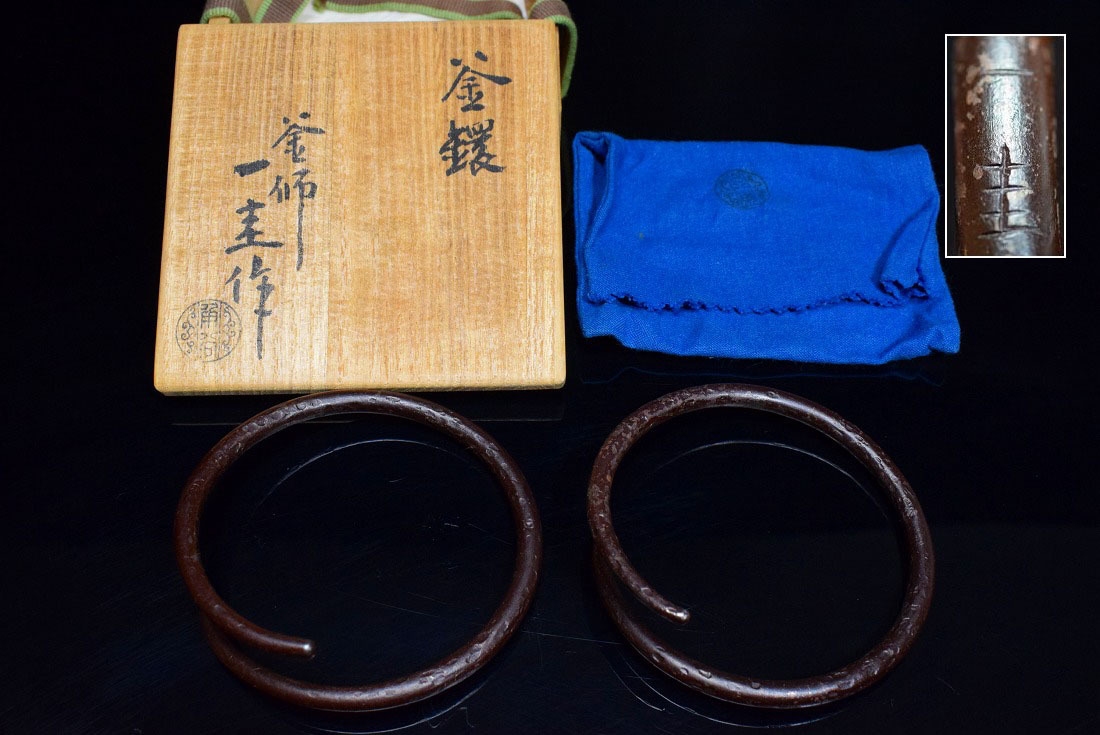 釜鐶
釜師
一圭作
一圭